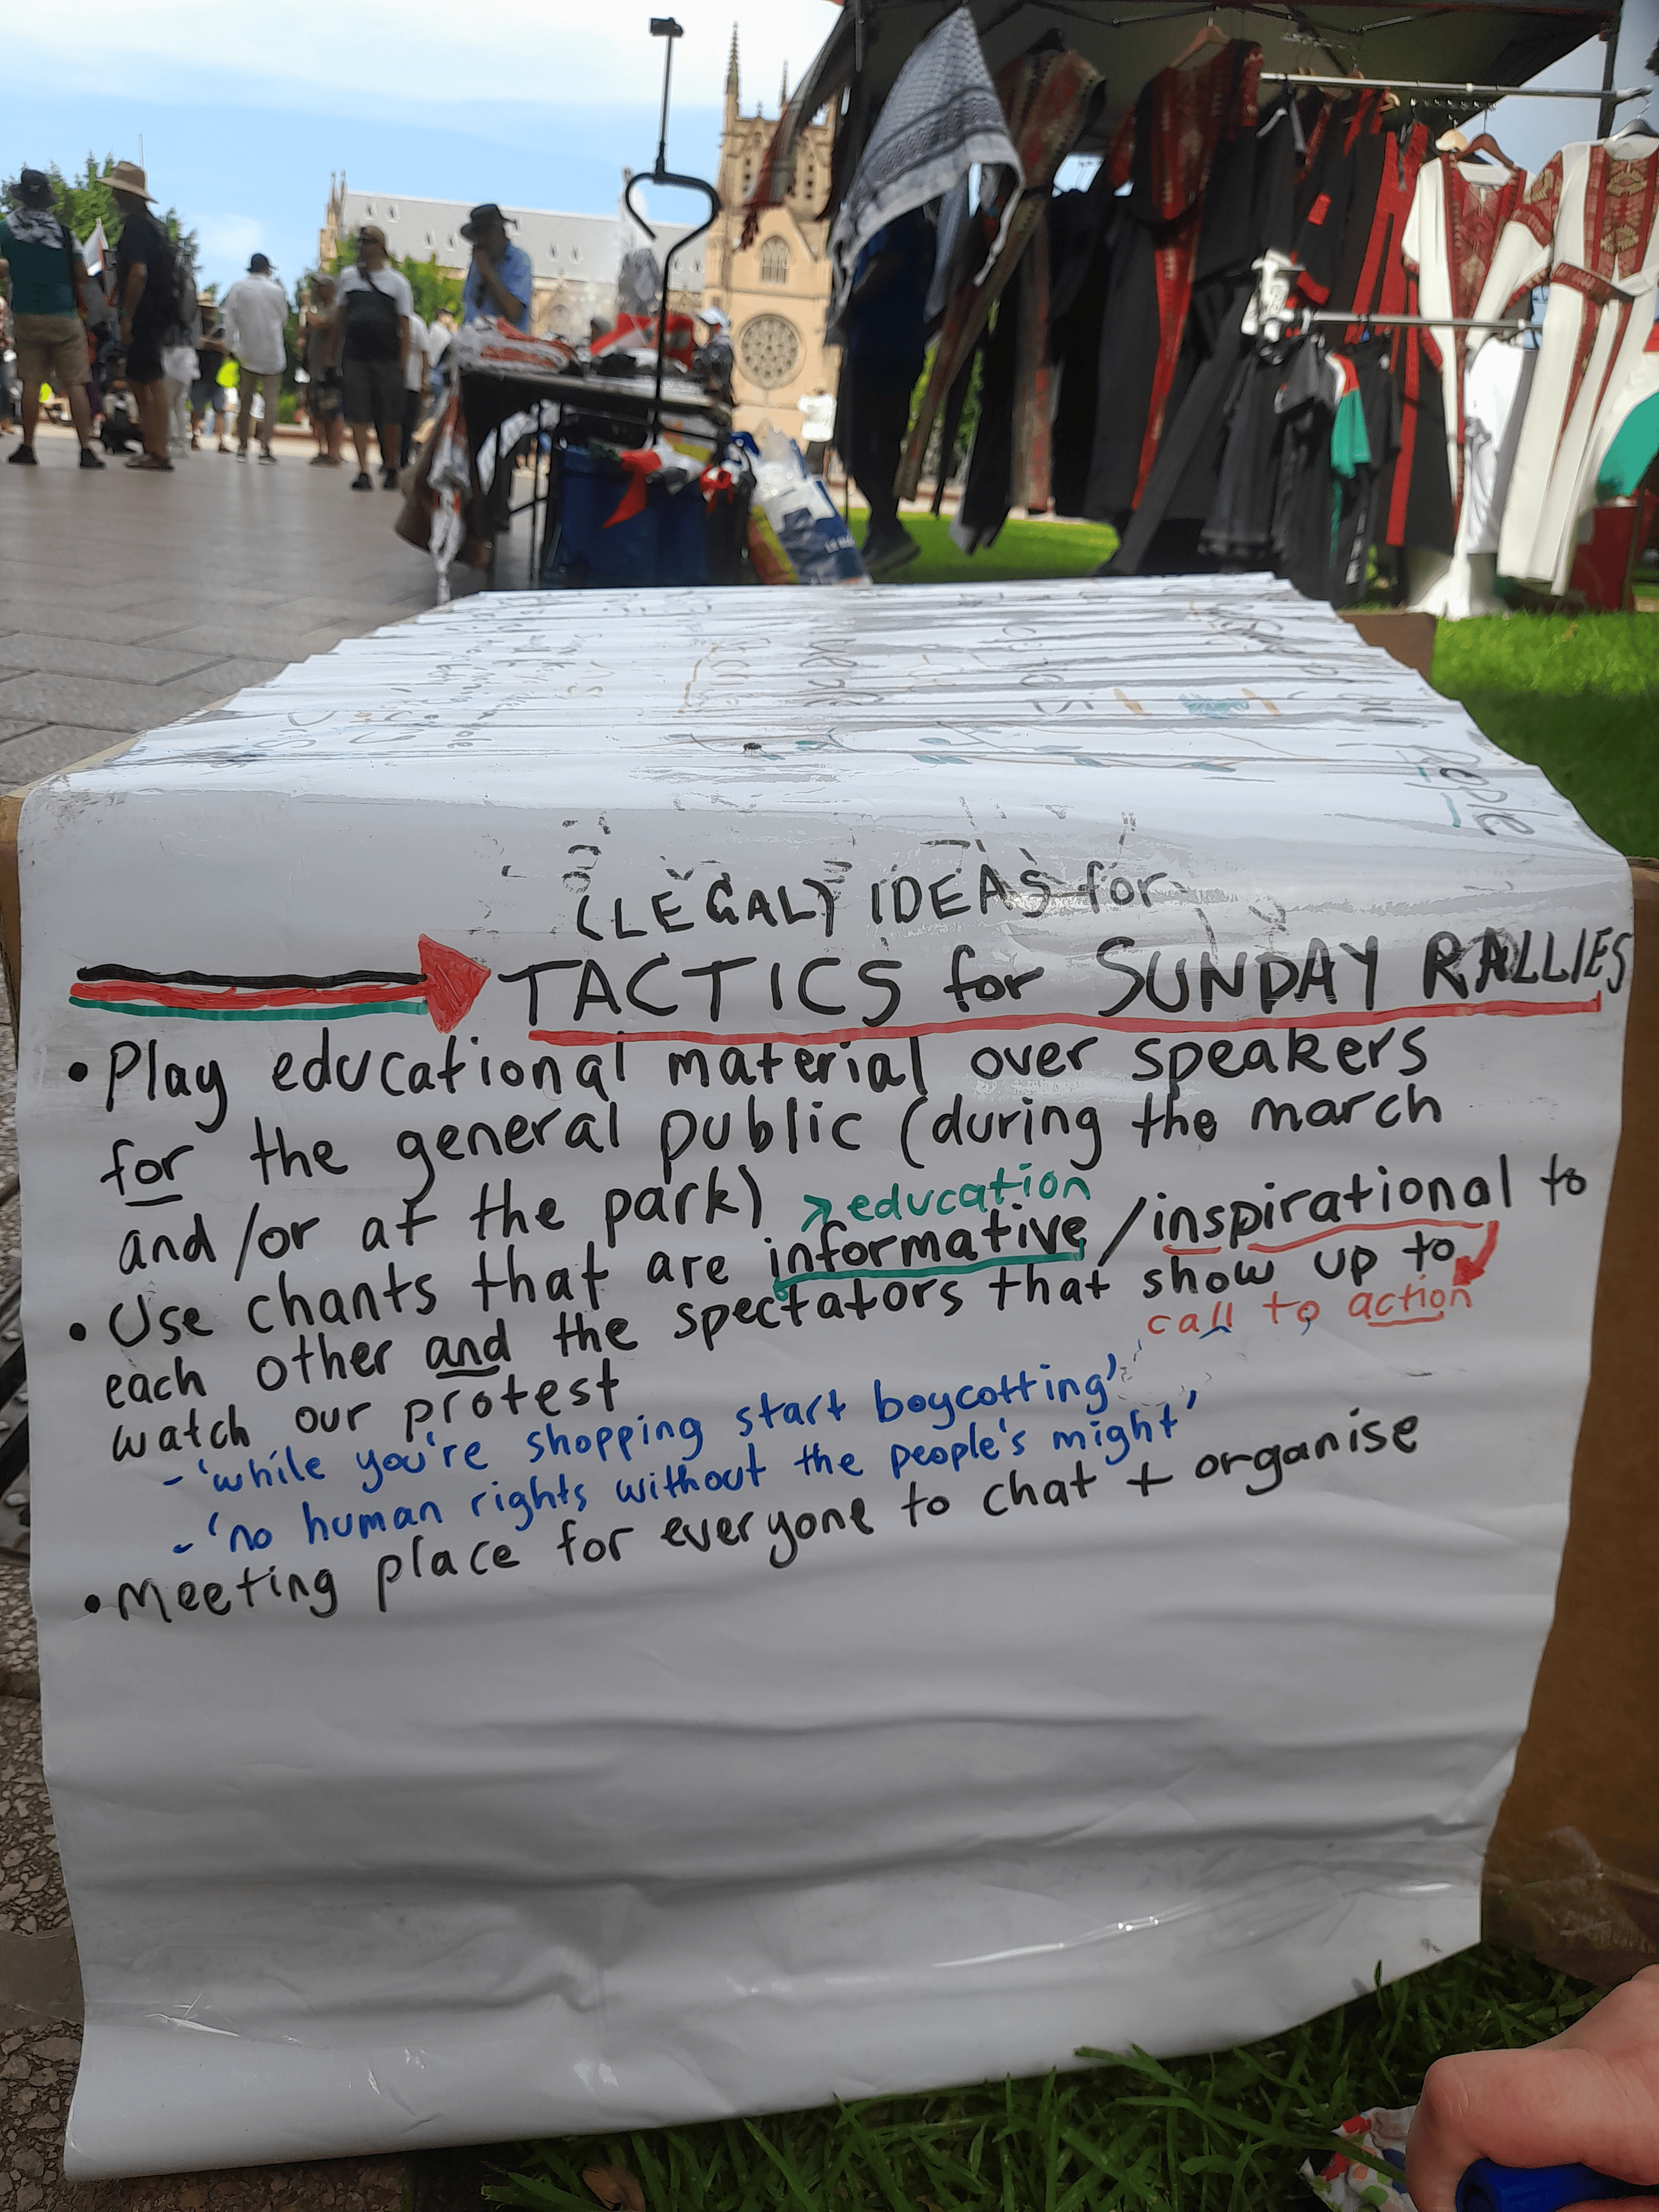 People
(LEGAL) IDEAS for
TACTICS for SUNDAY RALLIES
• Play educational material over speakers
for the general public (during the march
and/or at the park)
education
• Use chants that are informative/inspirational to
each other and the spectators that show up to
call to action
watch our protest
- 'while you're shopping start boycotting'
- 'no human rights without the people's might'
• Meeting place for everyone to chat + organise